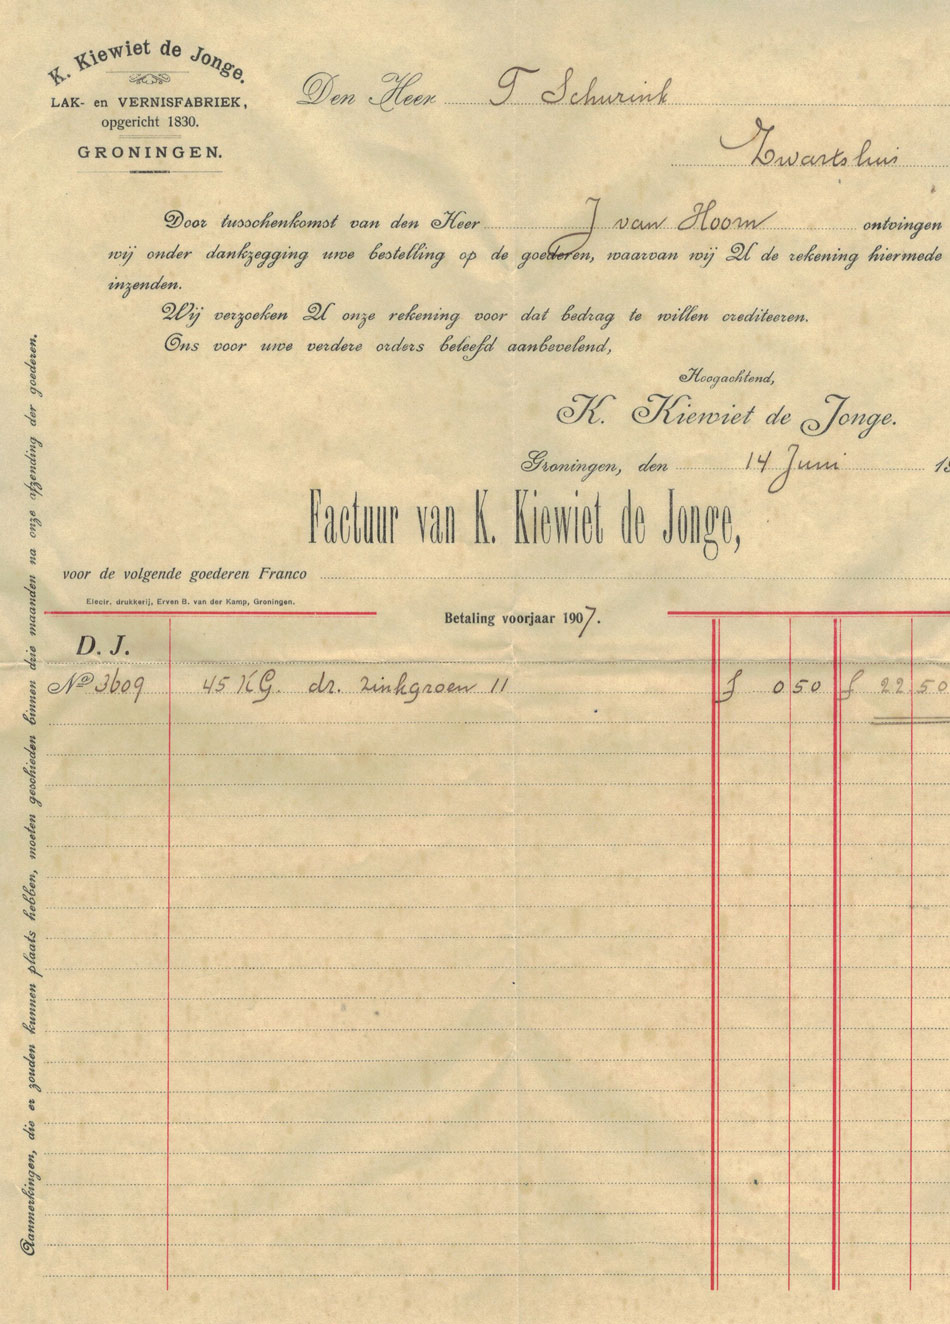 K. Kiewiet de Jonge.
LAK- en VERNISFABRIEK,
opgericht 1830.
GRONINGEN.
Den Heer T Schurink
Zwartsluis
Door tusschenkomst van den Heer J van Hoorn ontvingen
wij onder dankzegging uwe bestelling op de goederen, waarvan wij U de rekening hiermede
inzenden.
Wij verzoeken U onze rekening voor dat bedrag te willen crediteeren.
Ons voor uwe verdere orders beleefd aanbevelend,
Hoogachtend,
K. Kiewiet de Jonge.
Groningen, den 14 Juni 19
Factuur van K. Kiewiet de Jonge,
voor de volgende goederen Franco
Electr. drukkerij, Erven B. van der Kamp, Groningen.
Betaling voorjaar 1907.
D. J.
No 3609 45 KG. dr. zinkgroen 11 f 0 50 f 22 50
Aanmerkingen, die er zouden kunnen plaats hebben, moeten geschieden binnen drie maanden na onze afzending der goederen.